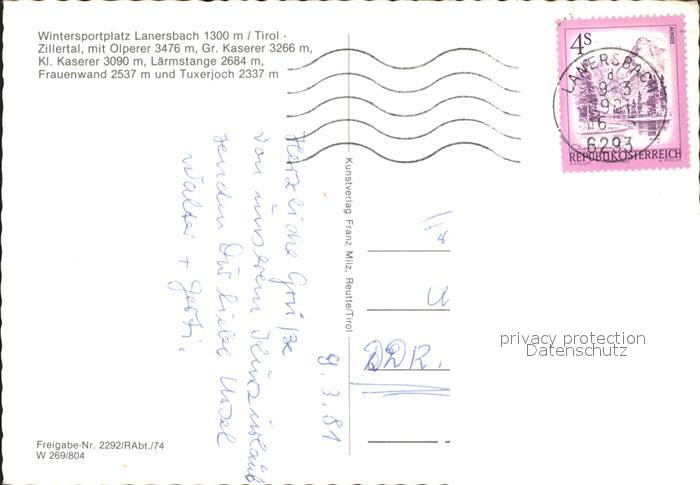 Wintersportplatz Lanersbach 1300 m / Tirol -
Zillertal, mit Olperer 3476 m, Gr. Kaserer 3266 m,
Kl. Kaserer 3090 m, Lärmstange 2684 m,
Frauenwand 2537 m und Tuxerjoch 2337 m
4S
ALMSEE
REPUBLIK ÖSTERREICH
LANERSBACH
6293
Kunstverlag Franz Milz, Reutte/Tirol
9.3.81
Herzliche Grüße
von unserem Kurzurlaub
senden Dir liebe Ursel
Walter + Gerti.
DDR.
privacy protection
Datenschutz
Freigabe-Nr. 2292/RAbt./74
W 269/804